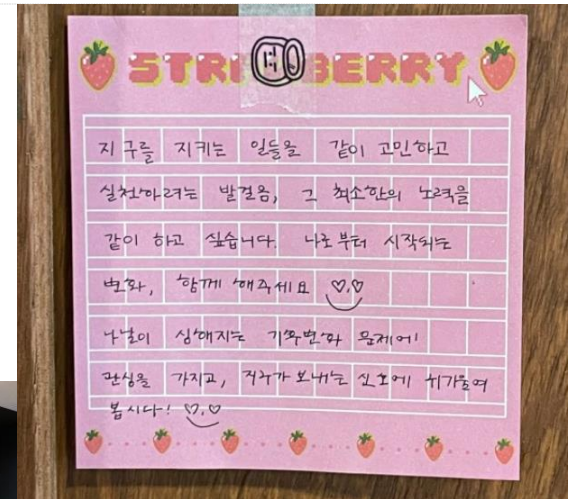 STRAWBERRY
지구를 지키는 일들을 같이 고민하고
실천하려는 발걸음, 그 최소한의 노력을
같이 하고 싶습니다. 나로부터 시작되는
변화, 함께 해주세요 ♡.♡
나날이 심해지는 기후변화 문제에
관심을 가지고, 지구가 보내는 신호에 귀기울여
봅시다! ♡.♡